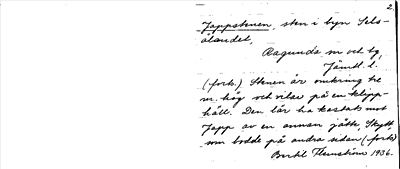 2.
Jappstenen, sten i byn Sels-
ålandet,
Ragunda sn och tg,
Jämtl. l.
(forts.) Stenen är omkring tre
m. hög och vilar på en klipp-
häll. Den lär ha kastats mot
Japp av en annan jätte, Skytt,
som bodde på andra sidan (forts)
Bertil Flemström 1936.